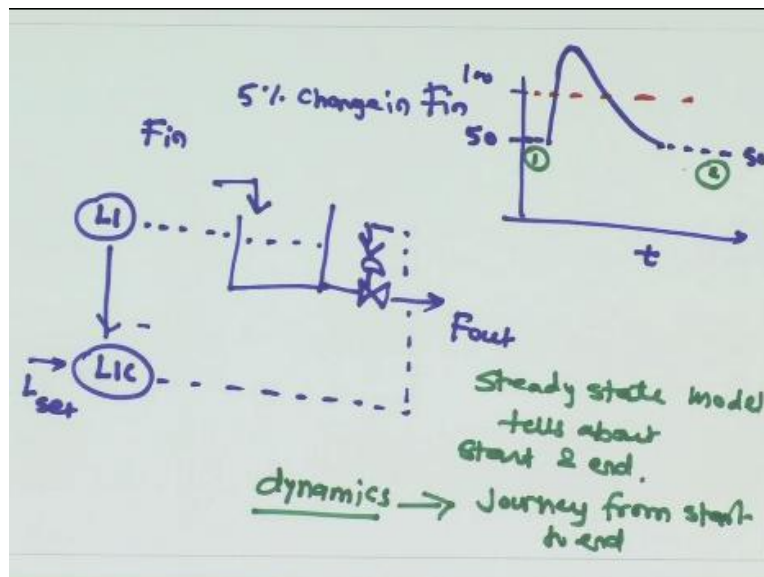 5% change in Fin
100
50
50
1
2
t
Fin
LI
LIC
Lset
Fout
Steady state model
tells about
Start & end.
dynamics → Journey from start
to end